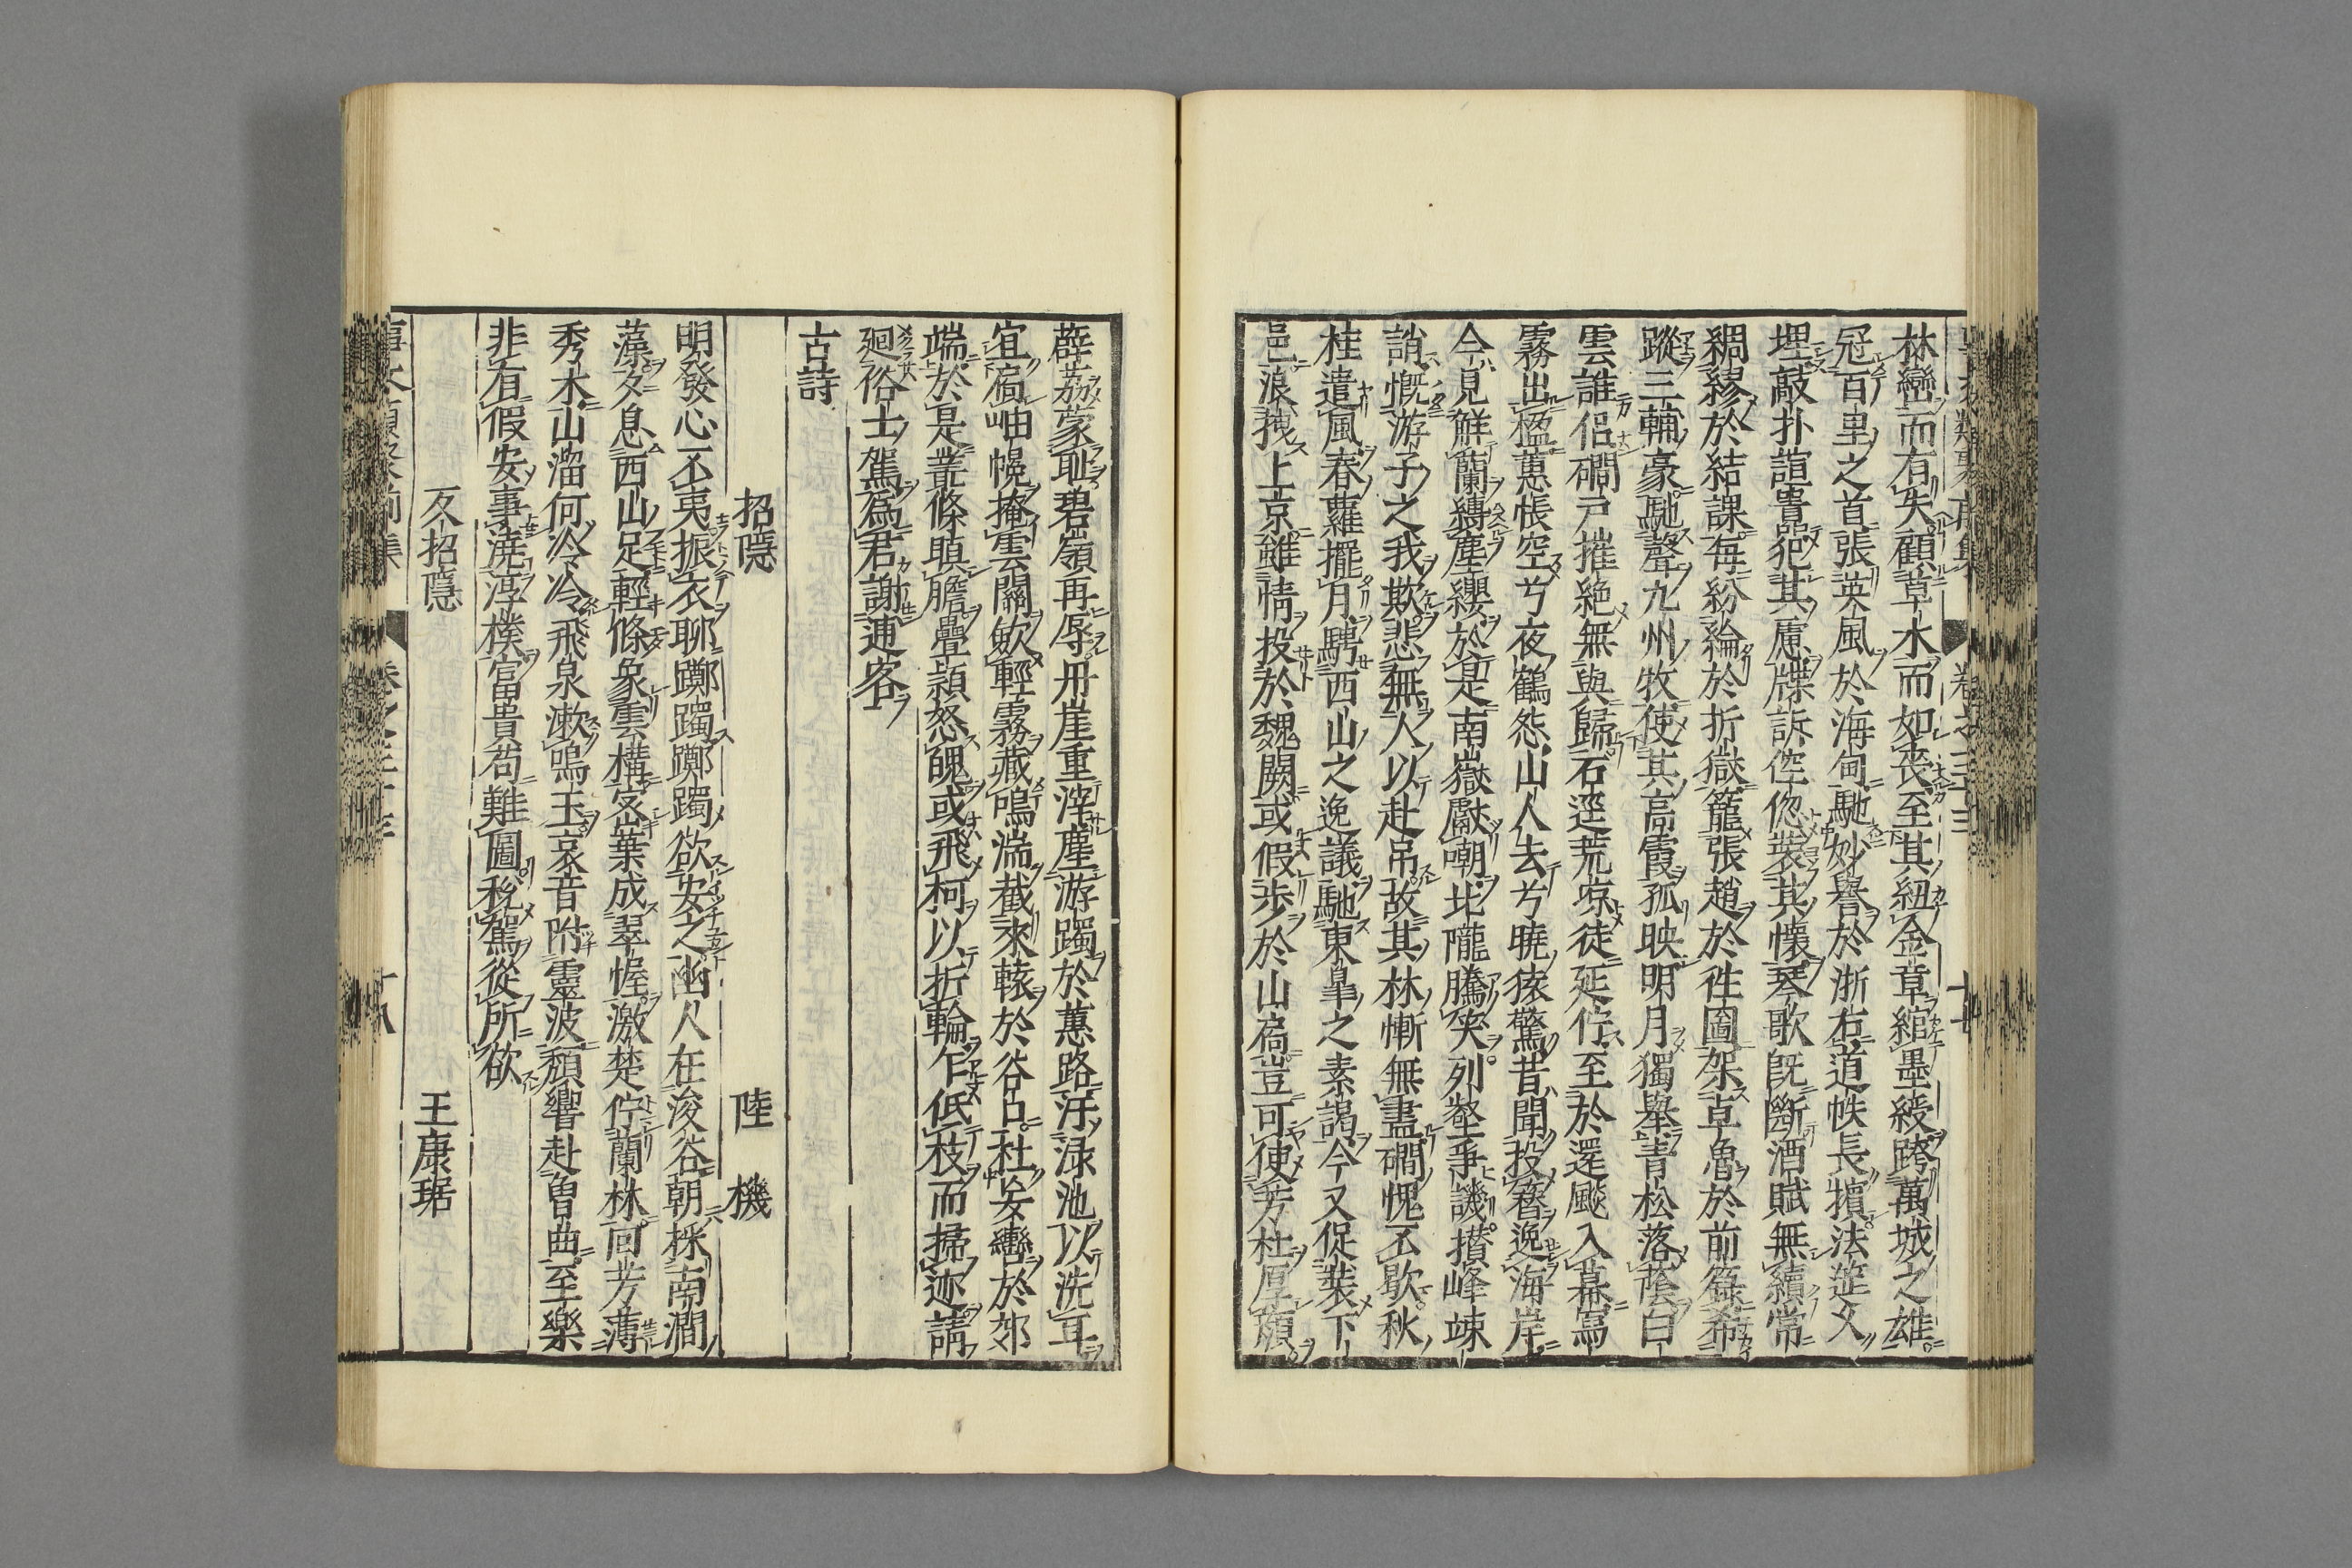 林巒而有失顧草木而如喪至其紐金章綰墨綬跨萬城之雄
冠百里之首張英風於海甸馳妙譽於浙右道帙長擯法筵久
埋敲扑諠嚻犯其慮牒訴倥偬裝其懷琴歌旣斷酒賦無續常
綢繆於結課每紛綸於折獄籠張趙於徃圖架卓魯於前籙希
蹤三輔豪馳聲九州牧使其高霞孤映明月獨舉青松落蔭白
雲誰侶磵戸摧絶無與歸石逕荒凉徒延佇至於還飈入幕寫
霧出楹蕙帳空兮夜鶴怨山人去兮曉猿驚昔聞投簪逸海岸
今見觧蘭縛塵纓於是南嶽獻嘲北隴騰笑列壑爭譏攅峰竦
誚慨游子之我欺悲無人以赴吊故其林慚無盡磵愧不歇秋
桂遣風春蘿擺月騁西山之逸議馳東皐之素謁今又促裝下
邑浪拽上京雖情投於魏闕或假歩於山扃豈可使芳杜厚顔
薜茘蒙耻碧嶺再辱丹崖重滓塵游躅於蕙路汙渌池以洗耳
宜扃岫幌掩雲關斂輕霧藏鳴湍截來轅於谷口杜妄轡於郊
端於是叢條瞋膽疊頴怒魄或飛柯以折輪乍低枝而掃迹請
廻俗士駕爲君謝逋客
古詩
招隱 陸機
明發心不夷振衣聊躑躅躑躅欲安之幽人在浚谷朝採南澗
藻夕息西山足輕條象雲構宻葉成翠幄激楚佇蘭林回芳薄
秀木山溜何泠冷飛泉漱鳴玉哀音附靈波頽響赴曽曲至樂
非有假安事澆淳樸富貴苟難圖稅駕從所欲
反招隱 王康琚
卷之三十三 十八